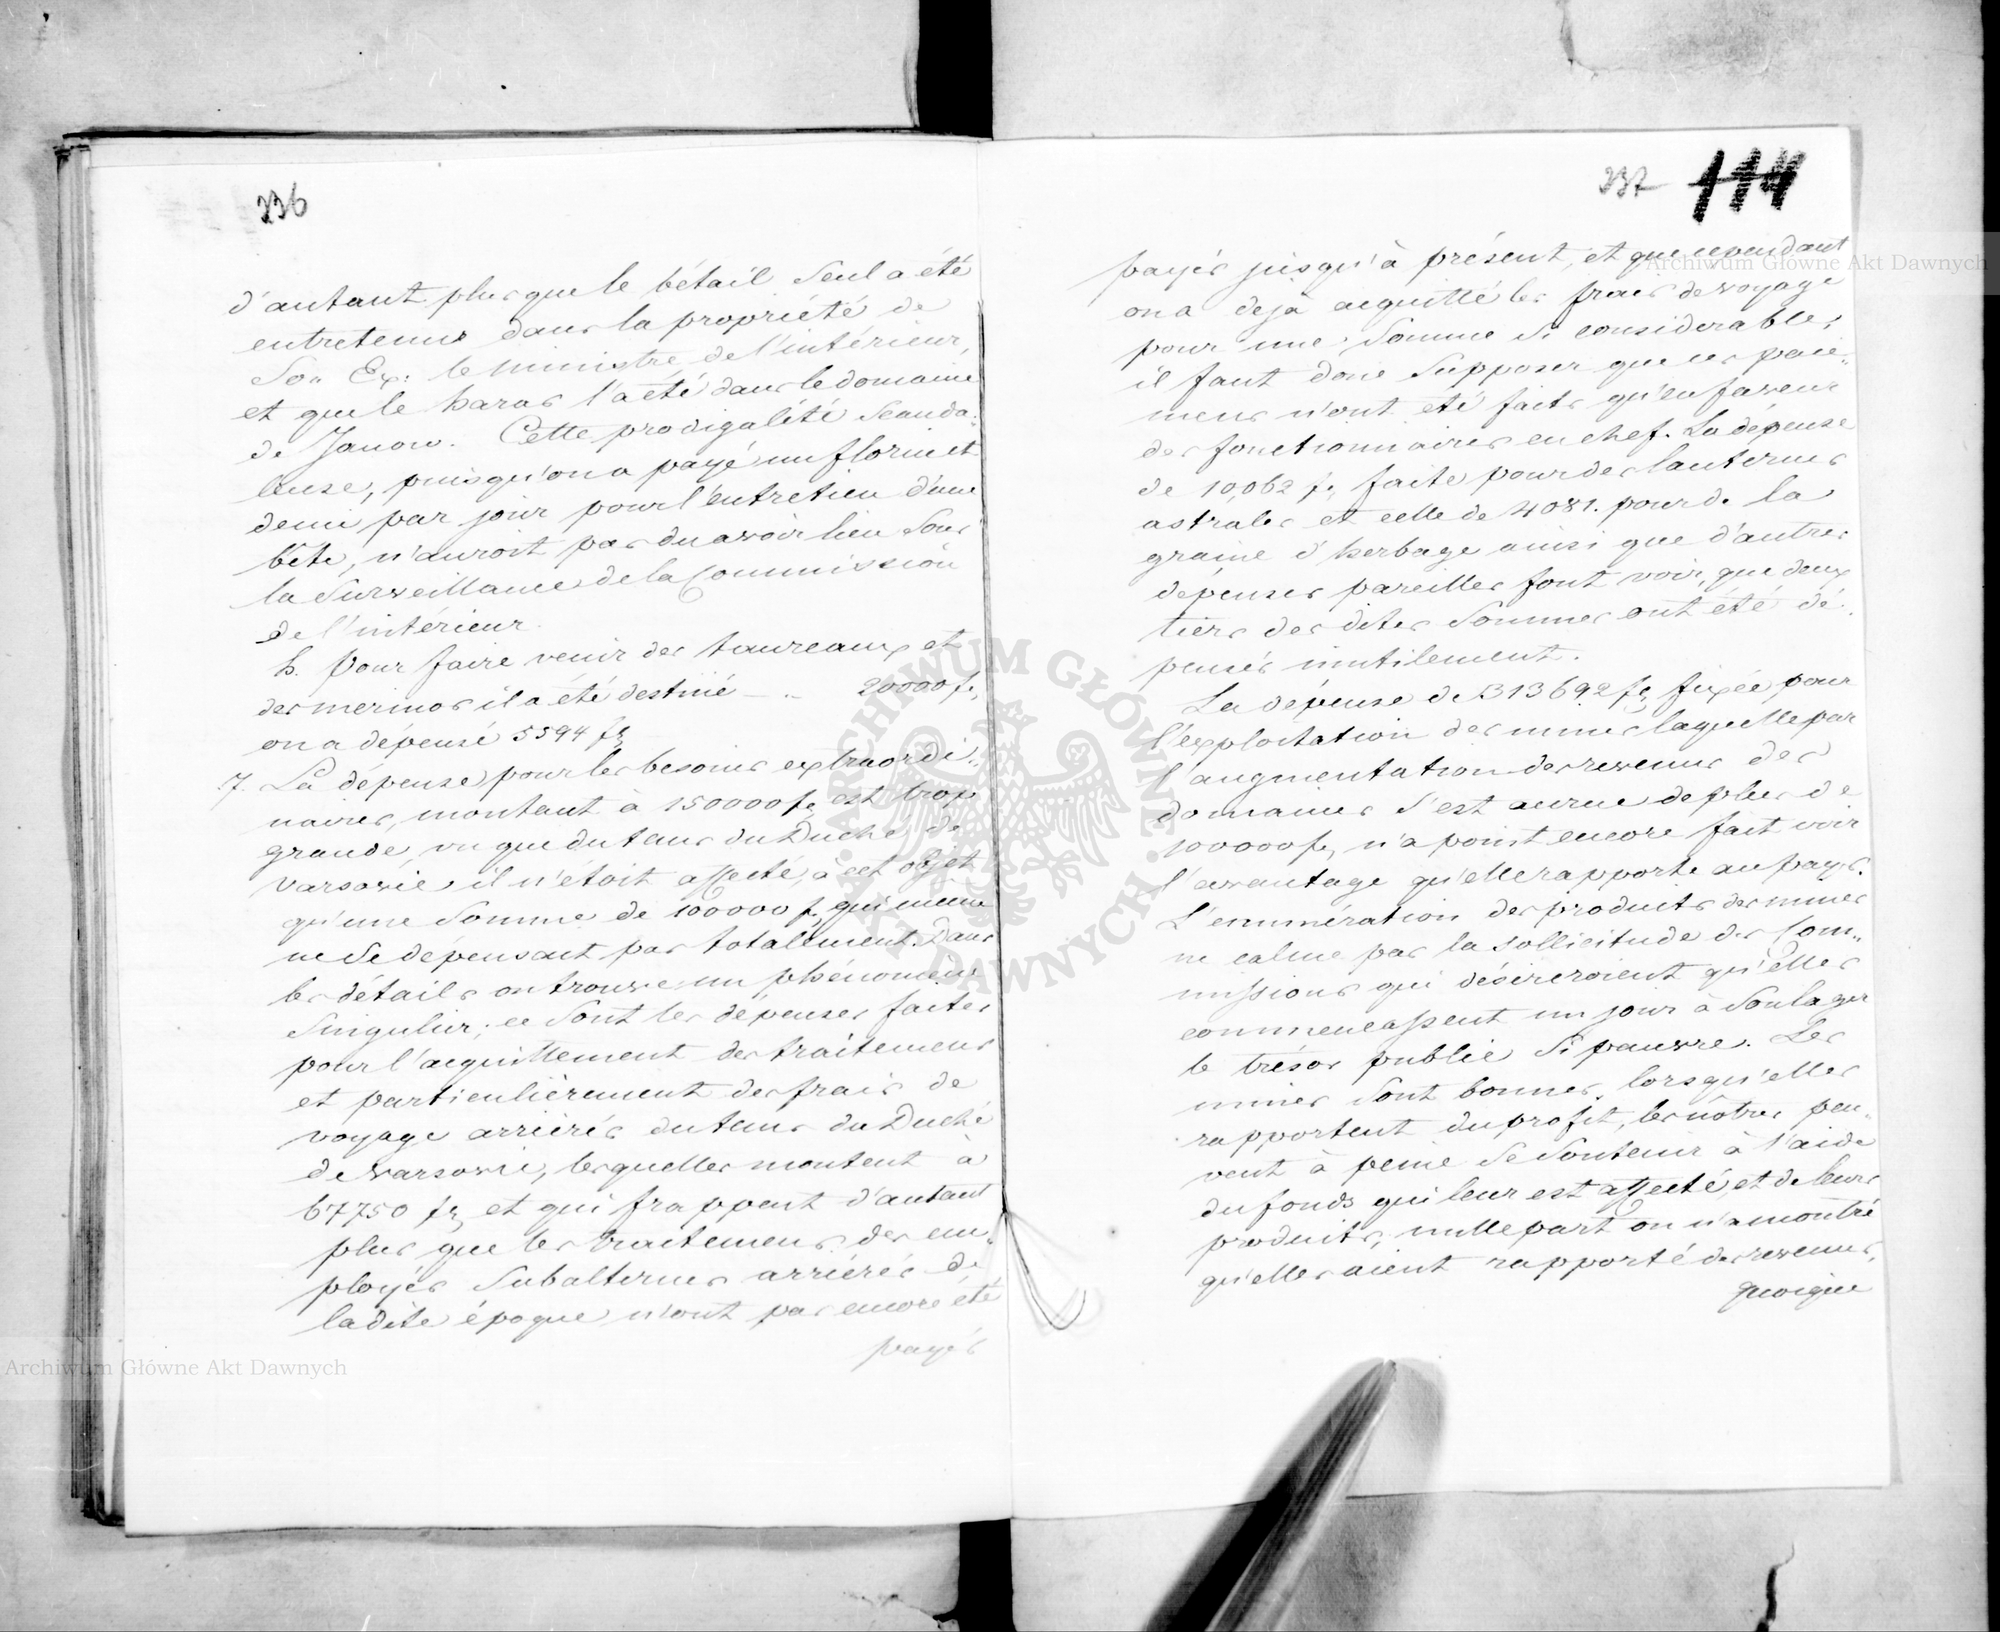 236
d'autant plus que le bétail seul a été
entretenu dans la propriété de
Son Ex: le ministre de l'intérieur,
et que le haras l'a été dans le domaine
de Janow. Cette prodigalité scanda-
leuse, puisqu'on a payé un florin et
demi par jour pour l'entretien d'une
bête, n'auroit pas du avoir lieu sous
la surveillance de la Commission
de l'intérieur.
h. Pour faire venir des taureaux et
des merinos il a été destiné — .. 20000 f,
on a dépensé 5594 fl
7. La dépense pour les besoins extraordi-
naires, montant à 150000 f, est trop
grande, vu que du tems du Duché de
Varsovie il n'étoit affecté à cet objet
qu'une somme de 100000 f, qui même
ne se dépensoit pas totalement. Dans
les détails on trouve un phénomène
singulier; ce sont les dépenses faites
pour l'acquittement des traitemens
et particulièrement des frais de
voyage arriérés du tems du Duché
de Varsovie, lesquelles montent à
67750 fl, et qui frappent d'autant
plus que les traitemens des em-
ployés subalternes arriérés de
la dite époque n'ont pas encore été
payés
237 114
payés jusqu'à présent, et que cependant
on a déjà acquitté les frais de voyage
pour une somme si considerable;
il faut donc supposer que ces paie-
mens n'ont été faits qu'en faveur
des fonctionnaires en chef. La dépense
de 10,062 f, faite pour des lanternes
astrales et celle de 4081. pour de la
graine d'herbage ainsi que d'autres
dépenses pareilles font voir, que deux
tiers des dites sommes ont été dé-
pensés inutilement.
La dépense de 313692 fl, fixée pour
l'exploitation des mines laquelle par
l'augmentation des revenus des
domaines s'est accrue de plus de
100000 f, n'a point encore fait voir
l'avantage qu'elle rapporte au pays.
L'enumération des produits des mines
ne calme pas la sollicitude des Com-
missions qui désireroient qu'elles
commençassent un jour à soulager
le trésor public si pauvre. Les
mines sont bonnes, lorsqu'elles
rapportent du profit, les nôtres peu-
vent à peine se soutenir à l'aide
du fonds qui leur est affecté, et de leurs
produits, nulle part on n'a montré
qu'elles aient rapporté des revenus.
quoique
Archiwum Główne Akt Dawnych
Archiwum Główne Akt Dawnych
ARCHIWUM GŁÓWNE AKT DAWNYCH